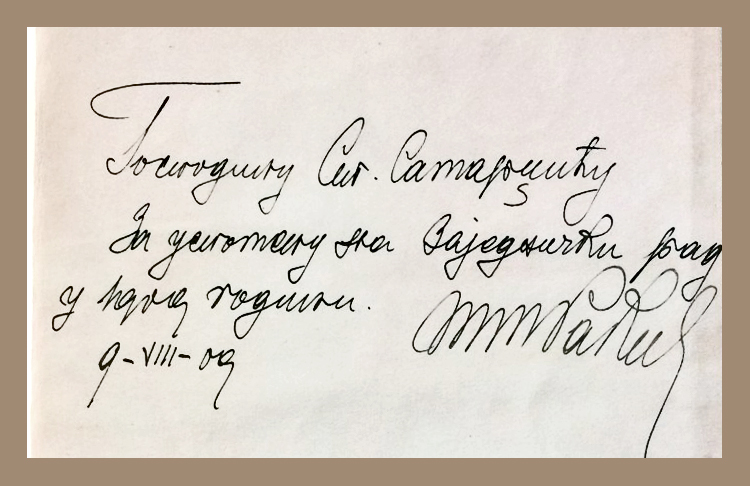 Господину Ст. Сатарџићу
За успомену на заједнички рад
у 1909 години.
9-VIII-09